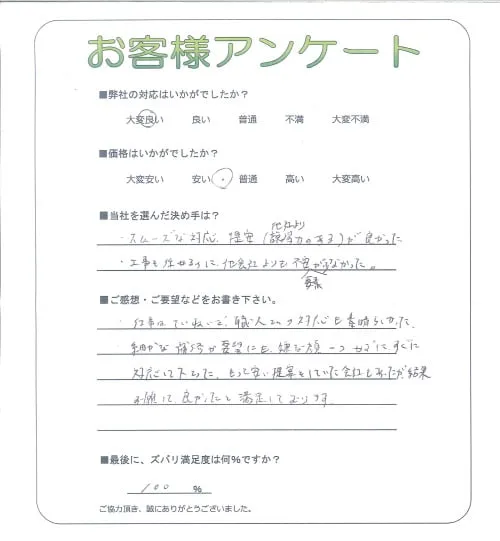 お客様アンケート
■弊社の対応はいかがでしたか？
大変良い 良い 普通 不満 大変不満
■価格はいかがでしたか？
大変安い 安い ・ 普通 高い 大変高い
■当社を選んだ決め手は？
他社より
・スムーズな対応、提案（説得力のある）が良かった
・工事を任せるのに、他会社よりも不安が少なかった。
要素
■ご感想・ご要望などをお書き下さい。
・仕事はていねいで、職人さんの対応も素晴らしかった。
細かな 要望にも、嫌な顔一つせずに、すぐに
対応して下さった。もっと安い提案をしていた会社もあったが結果
お願いして、良かったと満足しております。
■最後に、ズバリ満足度は何％ですか？
100 ％
ご協力頂き、誠にありがとうございました。